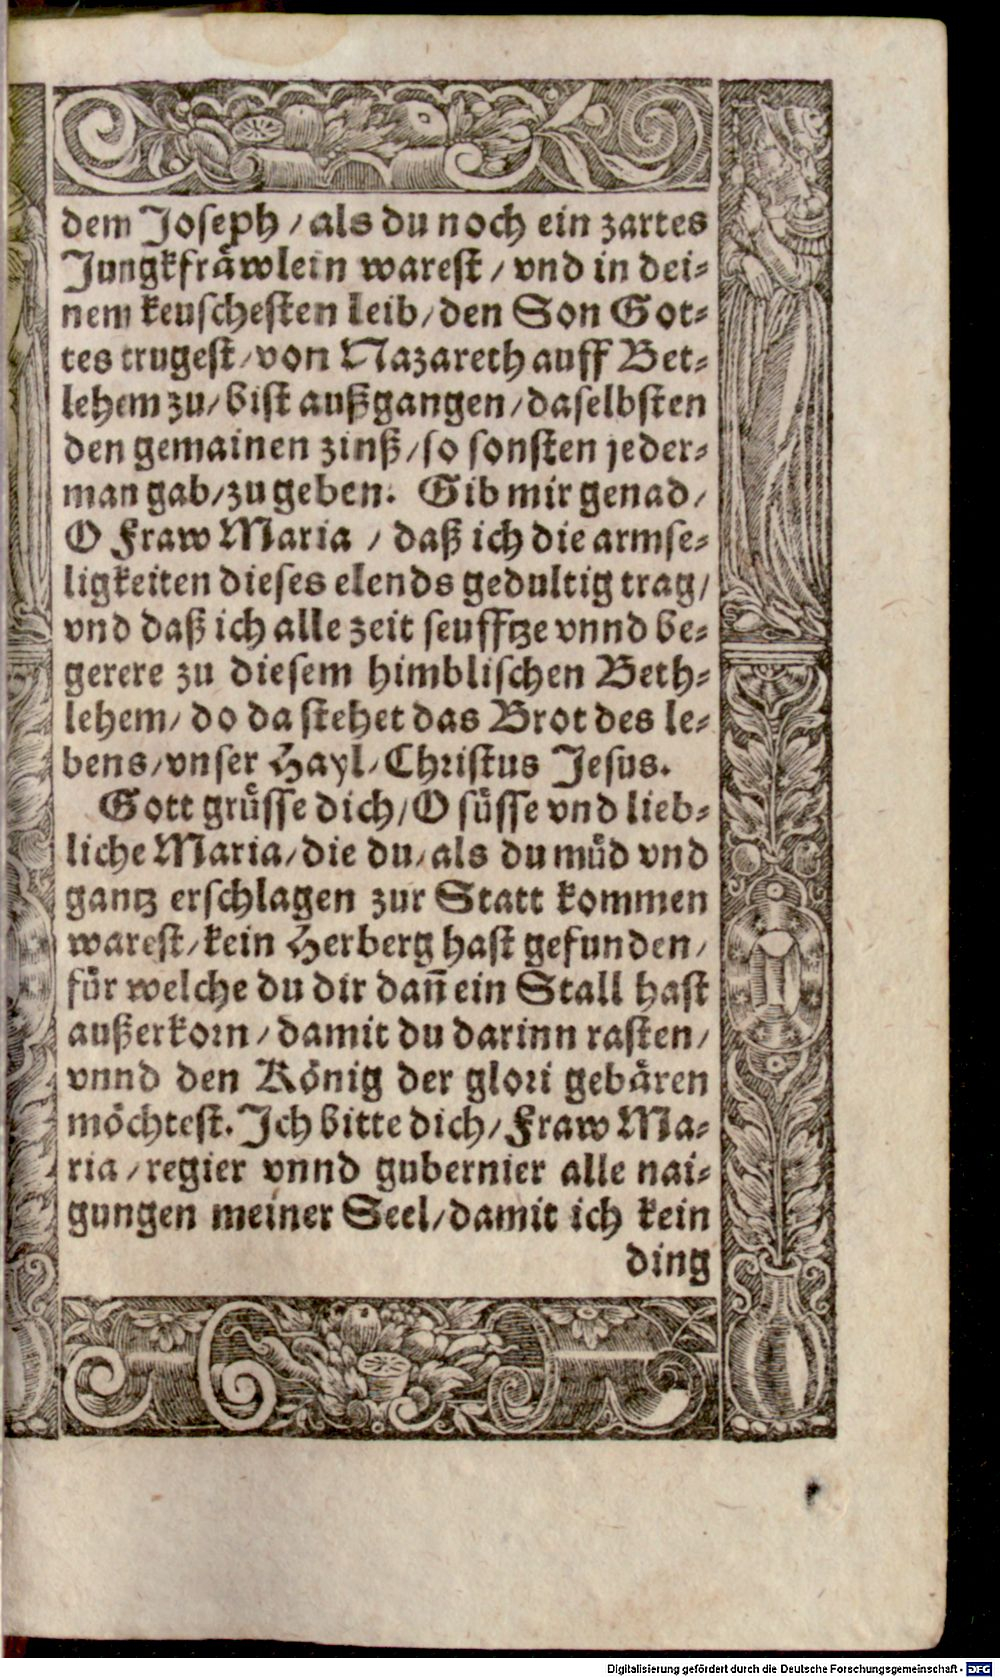 dem Joseph / als du noch ein zartes
Jungkfräwlein warest / vnd in dei⸗
nem keuschesten leib / den Son Got⸗
tes trugest / von Nazareth auff Bet⸗
lehem zu / bist außgangen / daselbsten
den gemainen zinß / so sonsten jeder⸗
man gab / zu geben. Gib mir genad /
O Fraw Maria / daß ich die armse⸗
ligkeiten dieses elends gedultig trag /
vnd daß ich alle zeit seufftze vnnd be⸗
gerere zu diesem himblischen Beth⸗
lehem / do da stehet das Brot des le⸗
bens / vnser Hayl / Christus Jesus.
Gott grüsse dich / O süsse vnd lieb⸗
liche Maria / die du / als du müd vnd
gantz erschlagen zur Statt kommen
warest / kein Herberg hast gefunden /
für welche du dir dañ ein Stall hast
außerkorn / damit du darinn rasten /
vnnd den König der glori gebären
möchtest. Ich bitte dich / Fraw Ma⸗
ria / regier vnnd gubernier alle nai⸗
gungen meiner Seel / damit ich kein
ding
Digitalisierung gefördert durch die Deutsche Forschungsgemeinschaft - DFG